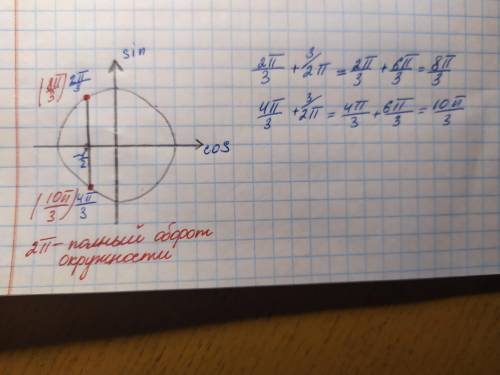 sin
(8π/3) 2π/3
-1/2
cos
(10π/3) 4π/3
2π - полный оборот
окружности
2π/3 + 3/2π = 2π/3 + 6π/3 = 8π/3
4π/3 + 3/2π = 4π/3 + 6π/3 = 10π/3